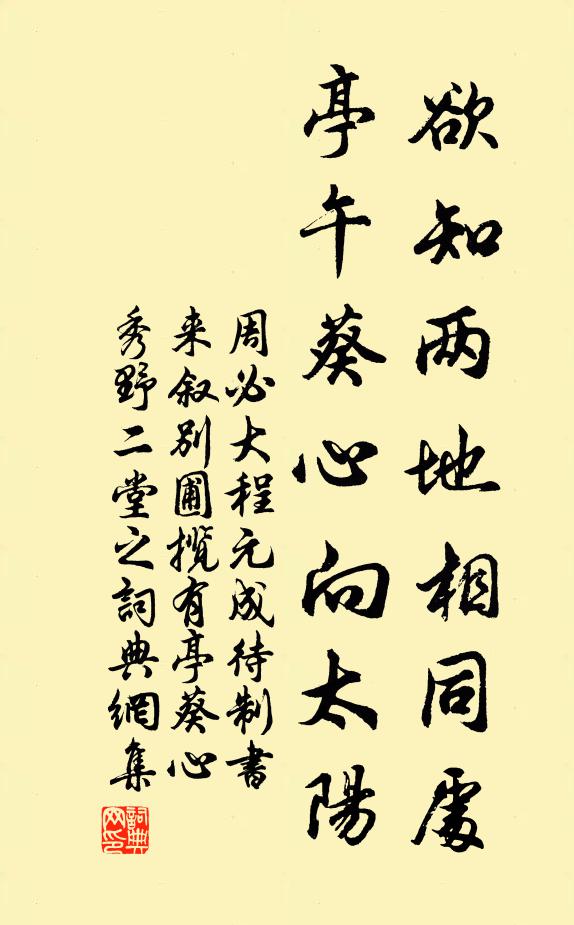 欲知两地相同處
亭午葵心向太陽
周必大程元成待制書
来叙别圃揽有亭葵心
秀野二堂之詞典網集
詞典网印